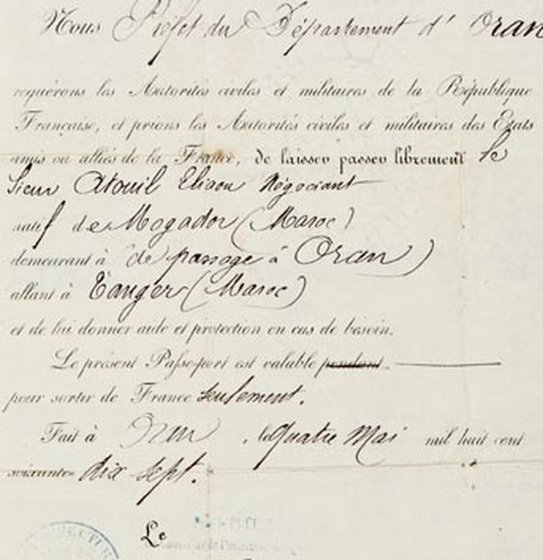 Nous Préfet du Département d'Oran
requérons les Autorités civiles et militaires de la République
Française, et prions les Autorités civiles et militaires des États
amis ou alliés de la France, de laisser passer librement le
Sieur Atouil Eliaou Négociant
natif de Mogador (Maroc)
demeurant à (de passage à Oran)
allant à Tanger (Maroc)
et de lui donner aide et protection en cas de besoin.
Le présent Passe-port est valable pendant
pour sortir de France seulement.
Fait à Oran, le quatre Mai mil huit cent
soixante dix sept.
Le